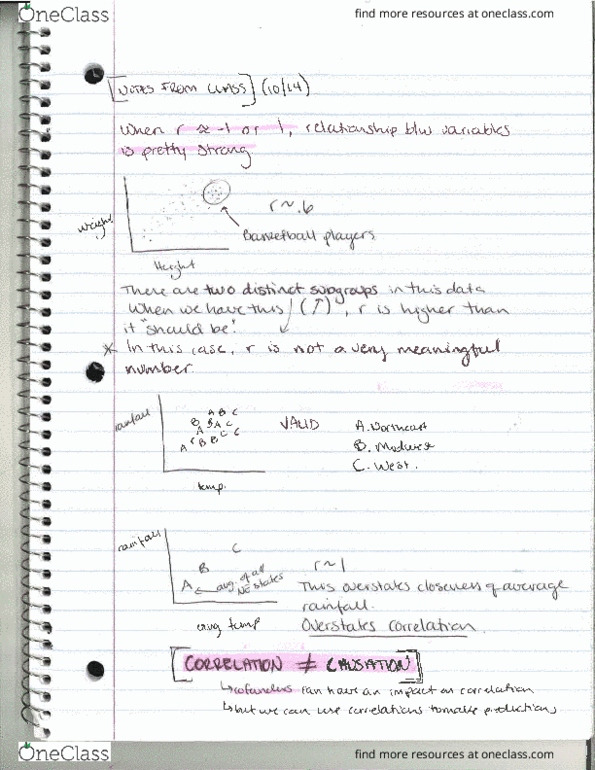 OneClass
find more resources at oneclass.com
[NOTES FROM CLASS] (10/14)
When r ≈ -1 or 1, relationship b/w variables
is pretty strong
weight
r ~ .6
Basketball players
Height
There are two distinct subgroups in this data
When we have this (↑), r is higher than
it "should be"
* In this case, r is not a very meaningful
number
rainfall
A B C
B B A C
A C C
A r B B
VALID
A. Northeast
B. Midwest
C. West.
temp.
rainfall
C
B
A ← avg. of all
NE states
r ~ 1
This overstates closeness of average
rainfall.
avg temp
Overstates correlation.
[CORRELATION ≠ CAUSATION]
↳ cofounders can have an impact on correlation
↳ but we can use correlations to make predictions
OneClass
find more resources at oneclass.com